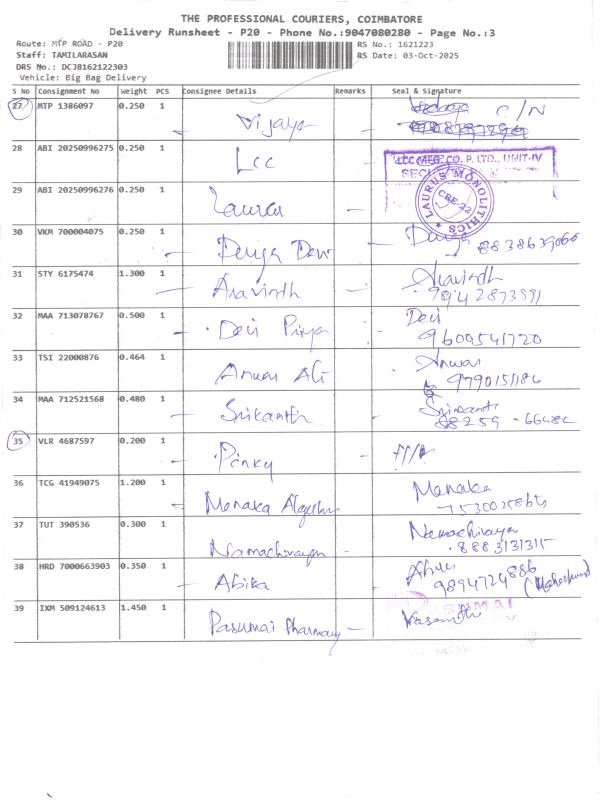 THE PROFESSIONAL COURIERS, COIMBATORE
Delivery Runsheet - P20 - Phone No.:9047080280 - Page No.:3
Route: MTP ROAD - P20
RS No.: 1621223
Staff: TAMILARASAN
RS Date: 03-Oct-2025
DRS No.: DCJB162122303
Vehicle: Big Bag Delivery
S No Consignment No Weight PCS Consignee Details Remarks Seal & Signature
27 MTP 1386097 0.250 1 Vijaya C/N
28 ABI 20250996275 0.250 1 Lcc
LCC MFG. CO. P. LTD., UNIT-IV
29 ABI 20250996276 0.250 1
LAURUS MONOLITHICS
CBE-22
30 VKM 700004075 0.250 1 Durga Devi Durga
31 STY 6175474 1.300 1 Aravindh Aravindh
9842873991
32 MAA 713078767 0.500 1 Devi Priya Devi
9600541720
33 TSI 22000876 0.464 1 Anwar Ali Anwar
34 MAA 712521568 0.480 1 Srikanth Srikanth
35 VLR 4687597 0.200 1 Pinky
36 TCG 41949075 1.200 1 Menaka Menaka
37 TUT 390536 0.300 1
8883131315
38 HRD 7000663903 0.350 1 Abika
9894724886
39 IXM 509124613 1.450 1 Pasumai Pharmacy Vasanthi